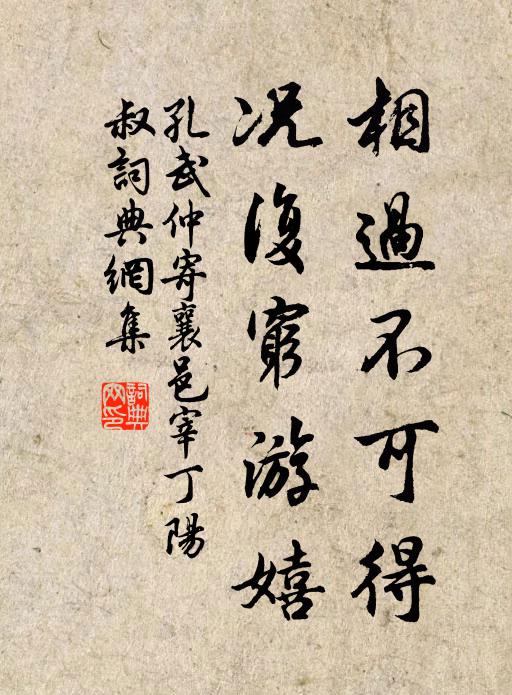 相過不可得
况復窮游嬉
孔武仲寄襄邑宰丁陽
叔詞典網集
詞典網印